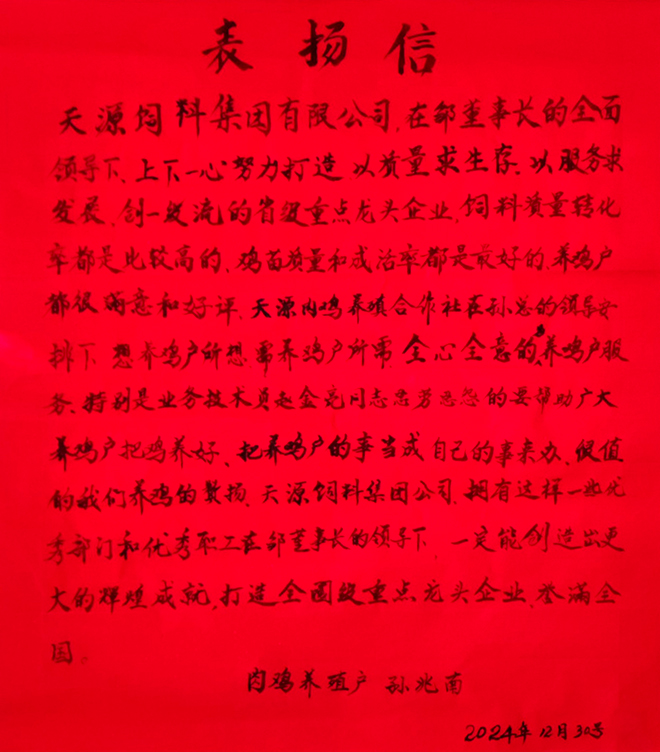 表扬信
天源饲料集团有限公司,在邵董事长的全面
领导下、上下一心努力打造 以质量求生存.以服务求
发展、创一级流的省级重点龙头企业,饲料质量转化
率都是比较高的、鸡苗质量和成活率都是最好的、养鸡户
都很满意和好评、天源肉鸡养殖合作社在孙总的领导安
排下 想养鸡户所想.需养鸡户所需.全心全意的为养鸡户服
务、特别是业务技术员赵金亮同志任劳任怨的要帮助广大
养鸡户把鸡养好、把养鸡户的事当成自己的事来办、很值
的我们养鸡的赞扬、天源饲料集团公司.拥有这样一些优
秀部门和优秀职工在邵董事长的领导下,一定能创造出更
大的辉煌成就,打造全国级重点龙头企业.誉满全
国。
肉鸡养殖户 孙兆南
2024年12月30号